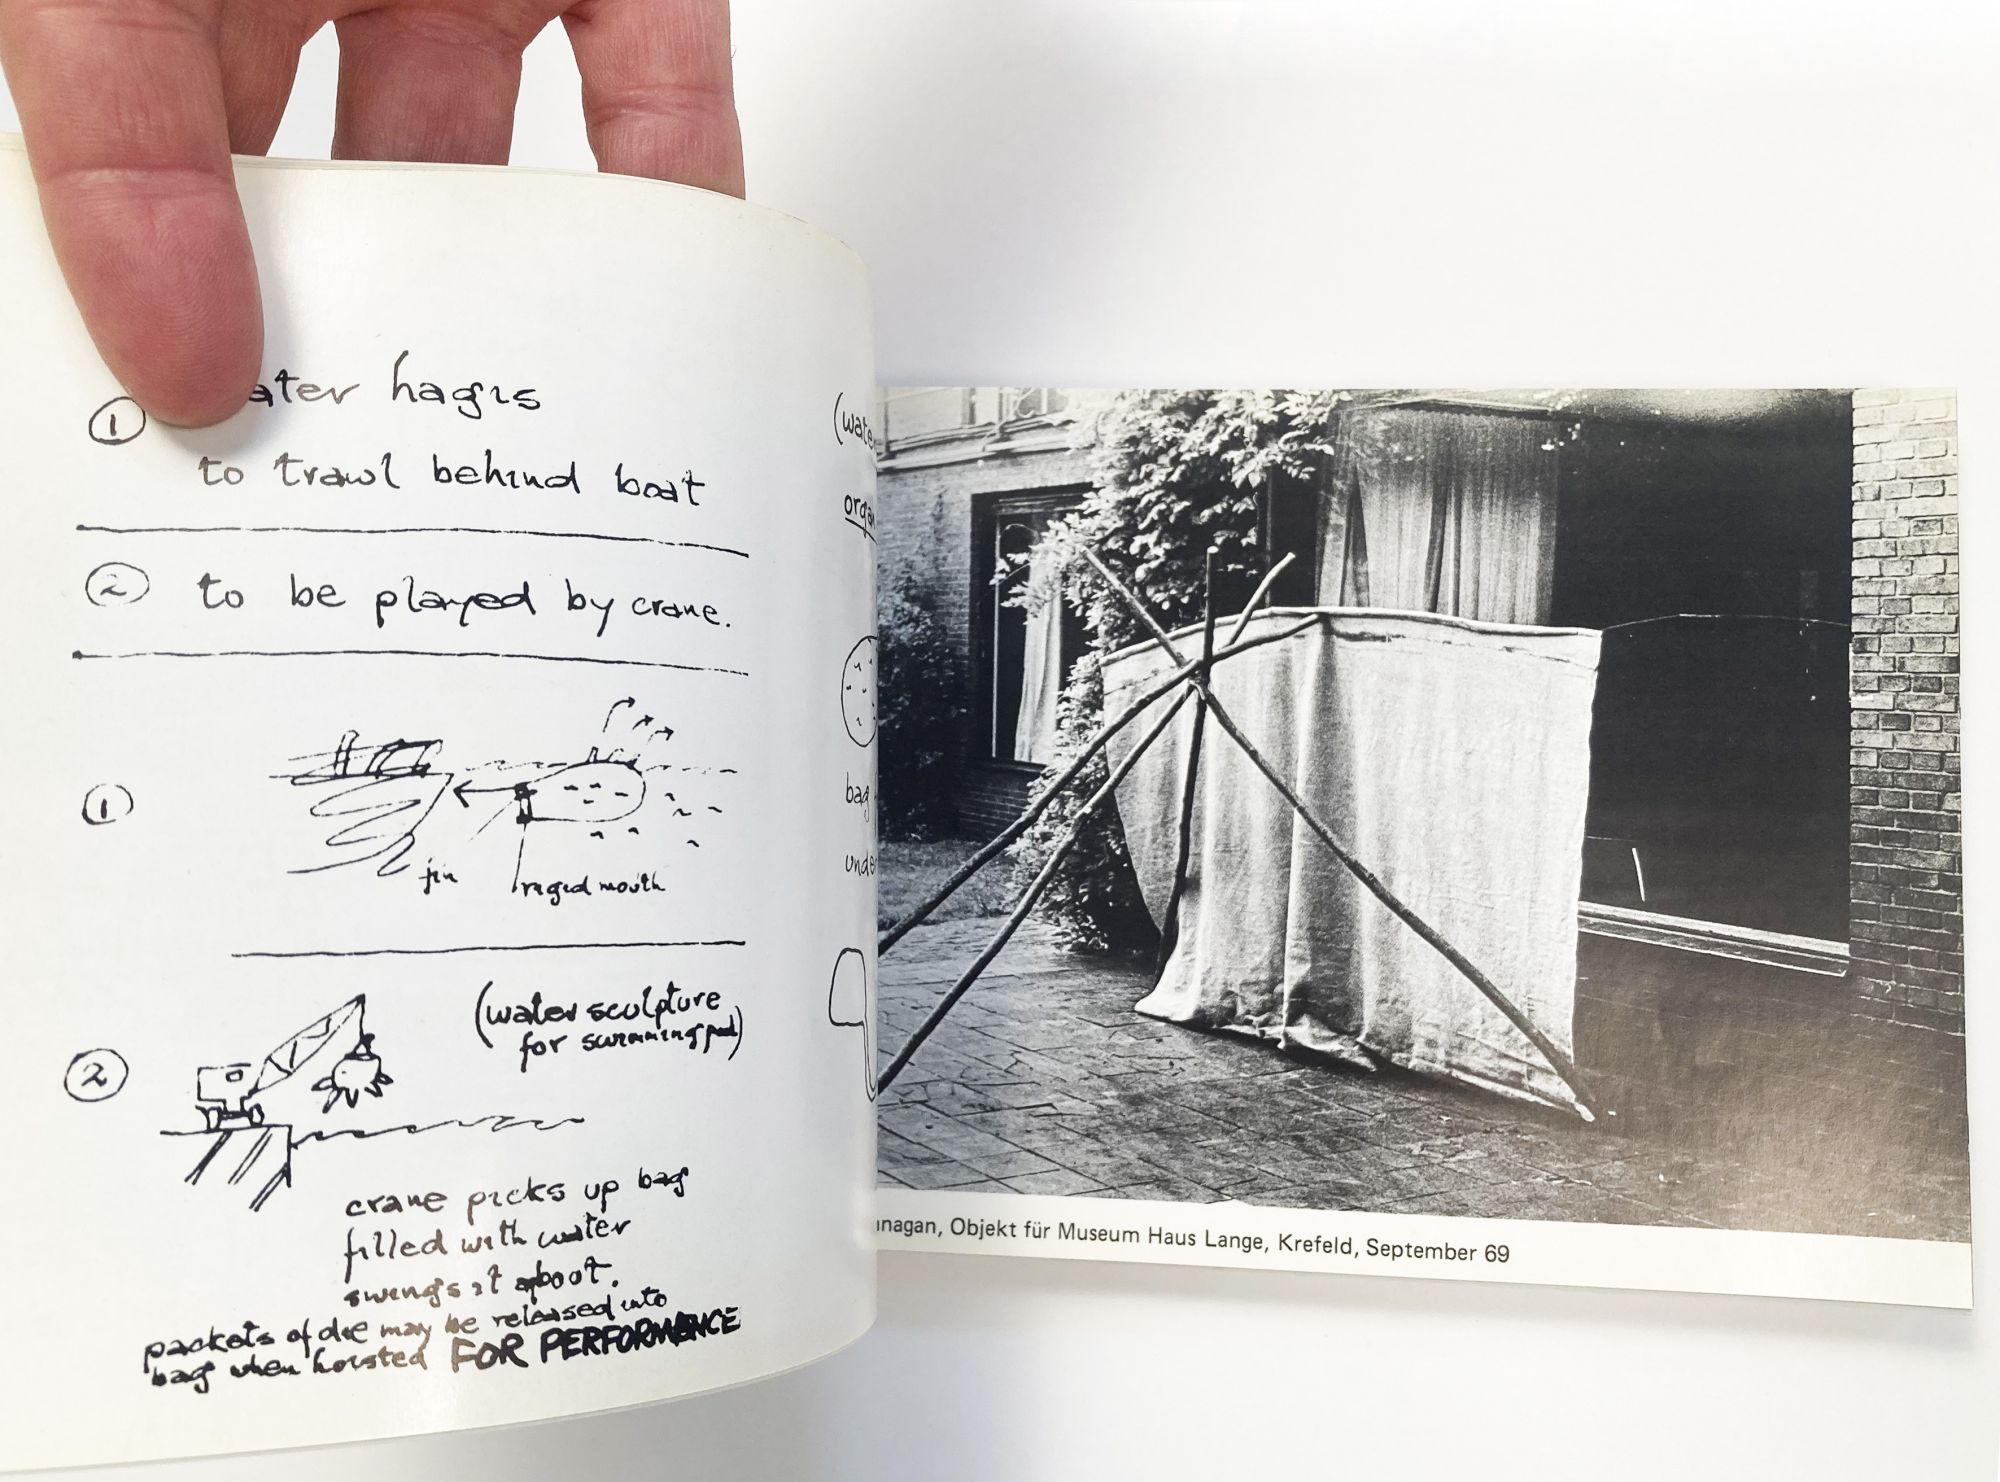 ① ater hagis
to trawl behind boat
② to be played by crane.
①
fin
rigid mouth
②
(water sculpture
for swimming pool)
crane picks up bag
filled with water
swings it aboot.
packets of die may be released into
bag when hoisted FOR PERFORMANCE
(wate
orga
bag
unde
nagan, Objekt für Museum Haus Lange, Krefeld, September 69